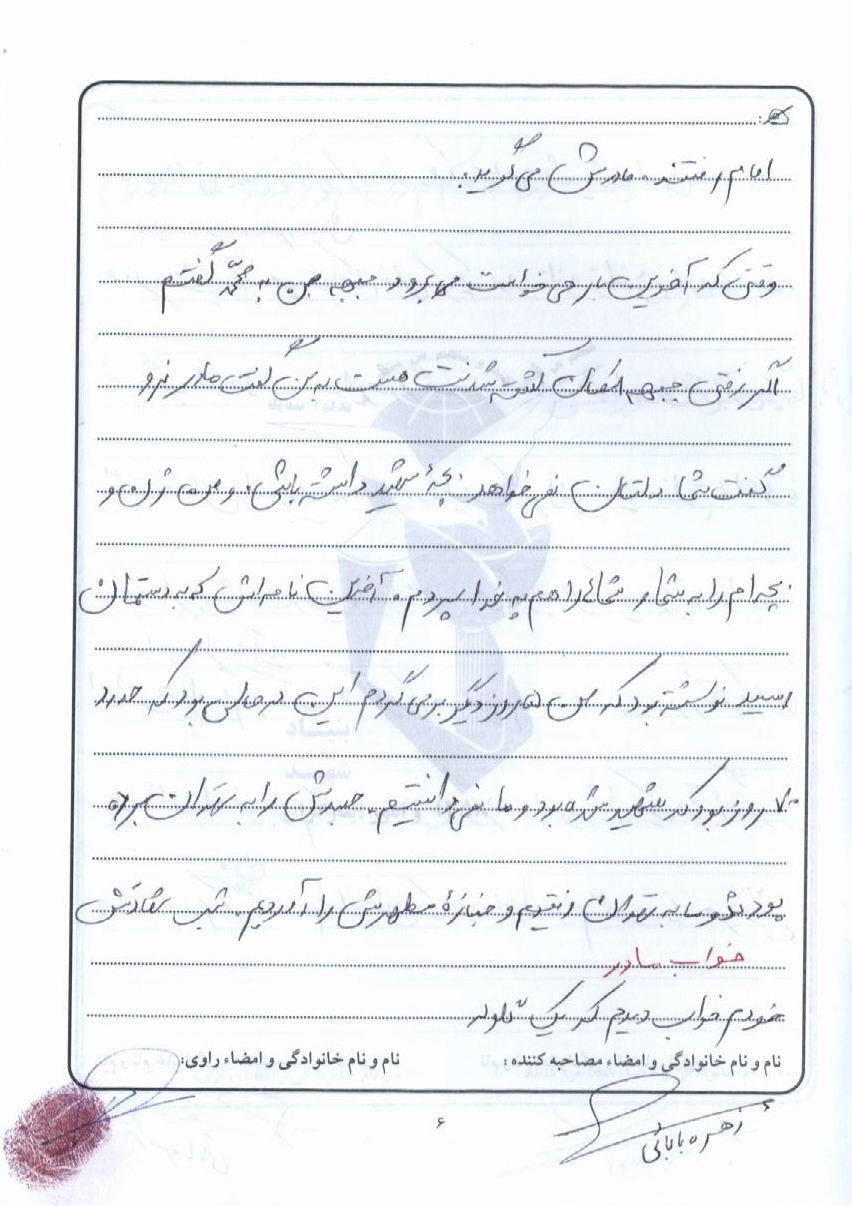 امام رفتند. مادرش می‌گوید:
وقتی که آخرین بار می‌خواست برود جبهه من به محمّد گفتم
اگر رفتی جبهه امکان کشته شدنت هست به من گفت مادر نرو
گفت شما دلتان نمی‌خواهد بچهٔ شهید داشته باشی. و من زن و
بچه‌ام را به شما و شما را هم به خدا سپردم. آخرین نامه‌اش که به دستمان
رسید نوشته بود که من ۵ روز دیگر برمی‌گردم این در حالی بود که حدود
۷۰ روز بود که شهید شده بود و ما نمی‌دانستیم. جسدش را به تهران برده
بودند و ما به تهران رفتیم و جنازهٔ مطهرش را آوردیم. شب شهادتش
خواب مادر
خودم خواب دیدم که یک گلوله
نام و نام خانوادگی و امضاء مصاحبه کننده :
نام و نام خانوادگی و امضاء راوی:
زهره بابائی
۶
بنیاد